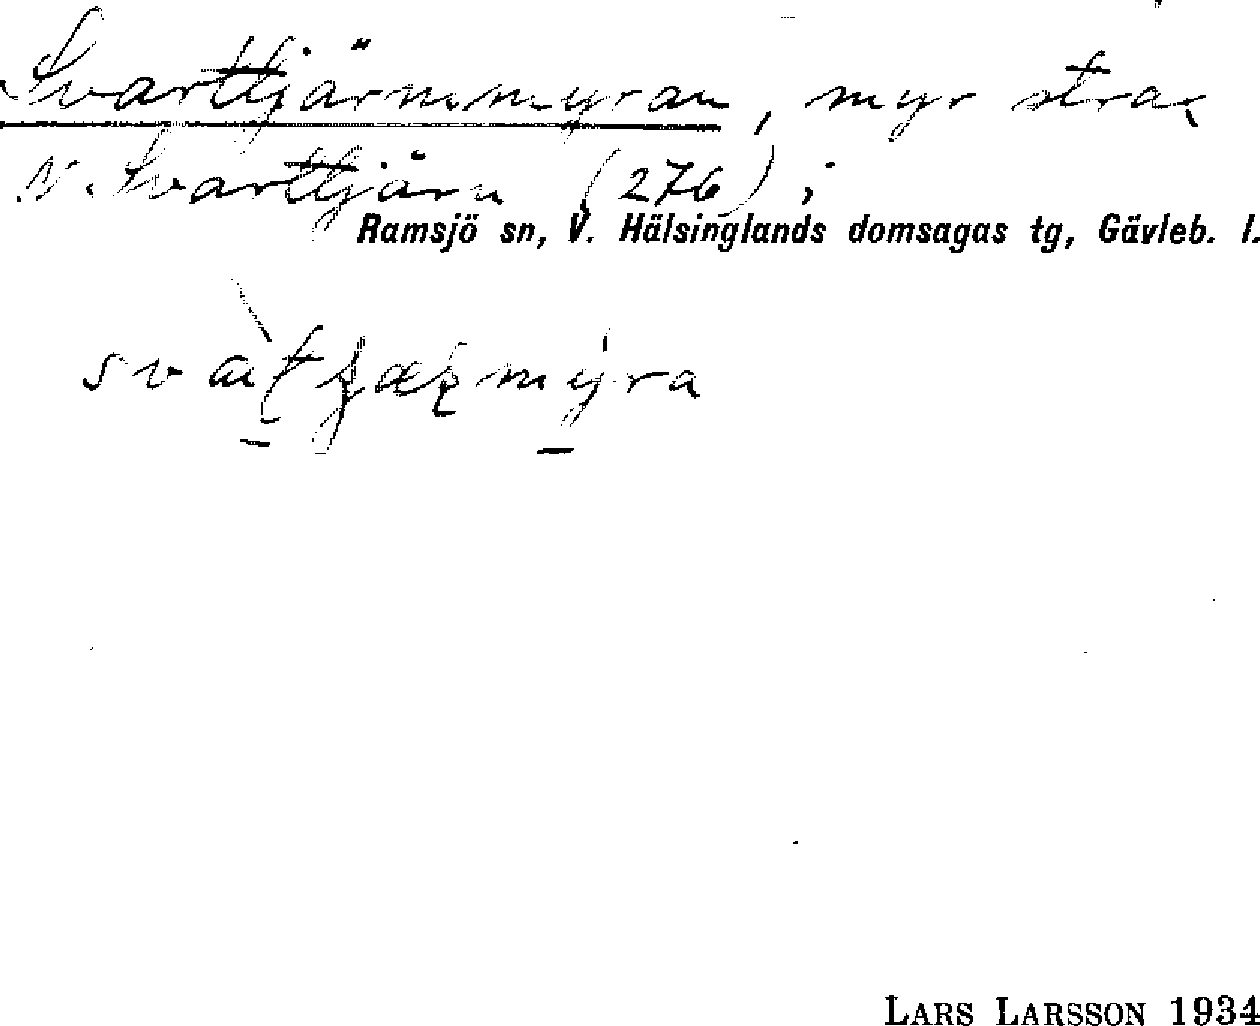 Svarttjärnmyran, myr strax
N. Svarttjärn (276) i
Ramsjö sn, V. Hälsinglands domsagas tg, Gävleb. l.
LARS LARSSON 1934